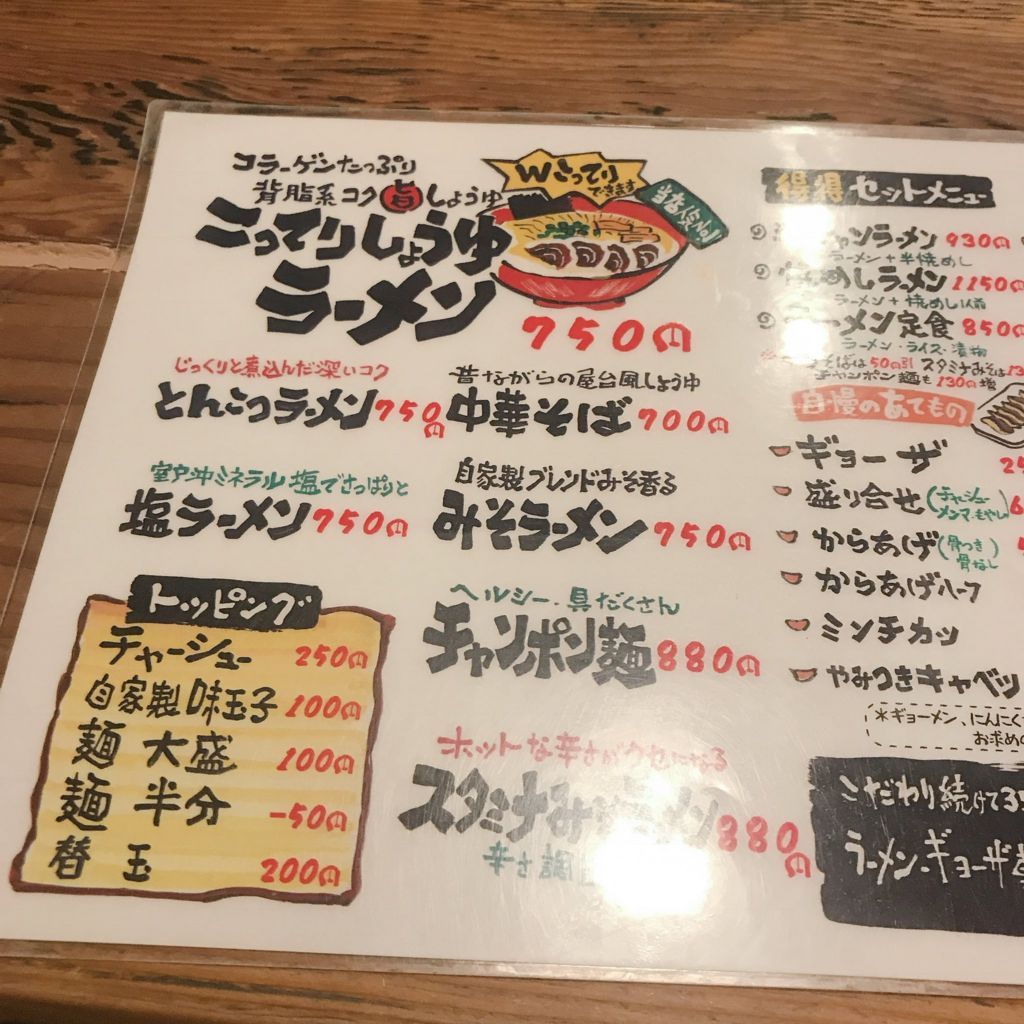 コラーゲンたっぷり
背脂系コク旨しょうゆ
こってりしょうゆ
ラーメン
750円
Wこってり
できます
当店人気No.1
じっくりと煮込んだ深いコク
とんこつラーメン 750円
昔ながらの屋台風しょうゆ
中華そば 700円
室戸沖ミネラル塩でさっぱりと
塩ラーメン 750円
自家製ブレンドみそ香る
みそラーメン 750円
ヘルシー・具だくさん
チャンポン麺 880円
ホットな辛さがクセになる
スタミナみそラーメン 880円
辛さ調
トッピング
チャーシュー 250円
自家製味玉子 100円
麺 大盛 100円
麺 半分 -50円
替 玉 200円
得得セットメニュー
チャンラーメン 930円
ラーメン+半焼めし
焼めしラーメン 1150円
ラーメン+焼めし1人前
ラーメン定食 850円
ラーメン・ライス・漬物
そばは50円引 スタミナみそは
チャンポン麺も130円増
自慢のあてもの
ギョーザ
盛り合せ(チャーシュー メンマ・もやし)
からあげ(骨つき 骨なし)
からあげハーフ
ミンチカツ
やみつきキャベツ
*ギョーメン、にんにく
お求めの
こだわり続けて
ラーメン・ギョーザ